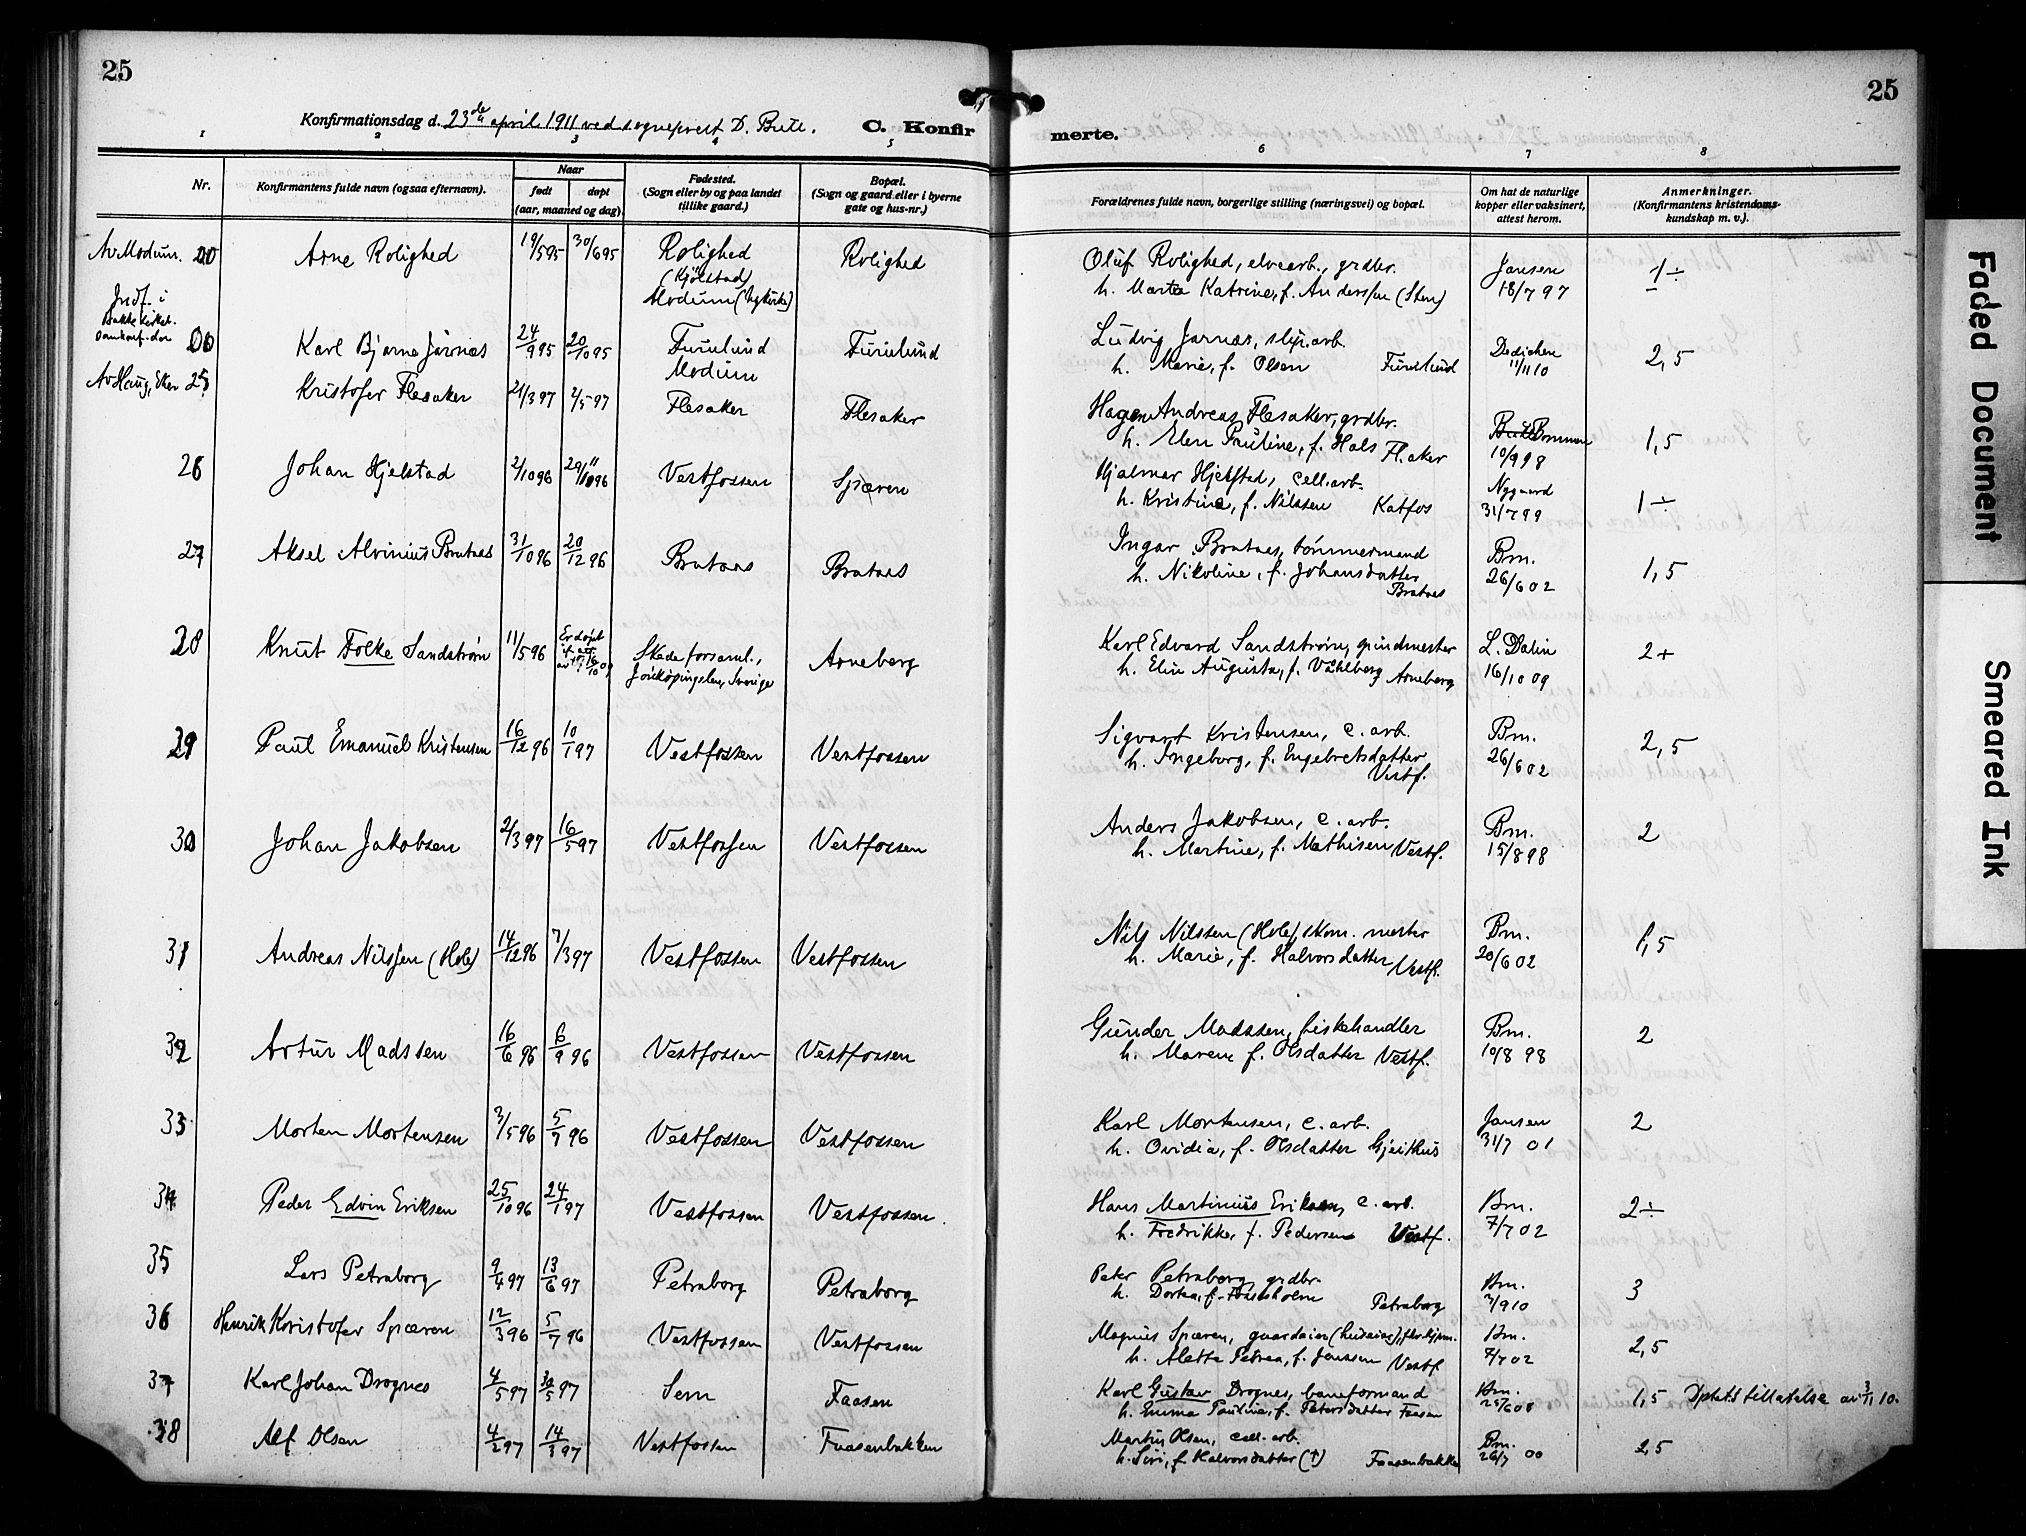 25
25
Konfirmationsdag d. 23de april 1911 ved sogneprest D. Bute.
C. Konfir
merte.
1 2 3 4 5 6 7 8
Nr.
Konfirmantens fulde navn (ogsaa efternavn).
Naar
født døpt
(aar, maaned og dag)
Fødested.
(Sogn eller by og paa landet
tillike gaard.)
Bopæl.
(Sogn og gaard eller i byerne
gate og hus-nr.)
Forældrenes fulde navn, borgerlige stilling (næringsvei) og bopæl.
Om hat de naturlige
kopper eller vaksinert,
attest herom.
Anmerkninger.
(Konfirmantens kristendoms-
kundskap m. v.).
Av Modum. Arne Rolighed 19/5 95 30/6 95 Rolighed Rolighed Oluf Rolighed, elvearb., grdbr. Jansen 1 ÷
(Kjølstad)
Modum (Nykirke) h. Marta Katrine, f. Anderssen (Sten) 18/7 97
Indf. i
Karl Bjarne Järnæs 24/9 95 20/10 95 Furulund Furulund Ludvig Jarnæs, slip.arb. Dedichen 2,5
Modum h. Marie, f. Olsen Furulund 11/11 10
Av Haug, Eker 25 Kristofer Flesaker 21/3 97 2/5 97 Flesaker Flesaker Hagen Andreas Flesaker, grdbr. Bommen 1,5
h. Elen Pauline, f. Hals Fl.aker 10/9 98
26 Johan Hjelstad 2/10 96 29/11 96 Vestfossen Spæren Hjalmar Hjelstad, cell.arb. Nygaard 1 ÷
h. Kristine, f. Nilssen Katfos 31/7 99
27 Aksel Alvinius Brataas 31/10 96 20/12 96 Brataas Brataas Ingar Brataas, tömmermand Bm. 1,5
h. Nikoline, f. Johansdatter 26/6 02
Brataas
28 Knut Folke Sandström 11/5 96 Er døpt Skede forsaml., Arneberg Karl Edvard Sandström, grindmester L. Dalin 2 +
Jönköpingslen, Sverige h. Elin Augusta, f. Vahlberg Arneberg 16/10 09
29 Paul Emanuel Kristensen 16/12 96 10/1 97 Vestfossen Vestfossen Sigvart Kristensen, c. arb. Bm. 2,5
h. Ingeborg, f. Engebretsdatter 26/6 02
Vestf.
30 Johan Jakobsen 2/3 97 16/5 97 Vestfossen Vestfossen Anders Jakobsen, c. arb. Bm. 2
h. Martine, f. Mathisen Vestf. 15/8 98
31 Andreas Nilssen (Hole) 14/12 96 7/3 97 Vestfossen Vestfossen Nils Nilssen (Hole), skom. mester Bm. 1,5
h. Marie, f. Halvorsdatter Vestf. 20/6 02
32 Artur Madssen 16/6 96 6/9 96 Vestfossen Vestfossen Gunder Madssen, fiskehandler Bm. 2
h. Maren, f. Olsdatter Vestf. 10/8 98
33 Morten Mortensen 3/5 96 5/7 96 Vestfossen Vestfossen Karl Mortensen, c. arb. Jansen 2
h. Ovidia, f. Olsdatter Gjeithus 31/7 01
34 Peder Edvin Eriksen 25/10 96 24/1 97 Vestfossen Vestfossen. Hans Martinius Eriksen, c. arb. Bm. 2 ÷
h. Fredrikke, f. Pedersen Vestf. 7/7 02
35 Lars Petraborg 9/4 97 13/6 97 Petraborg Petraborg Peter Petraborg, grdbr. Bm. 3
h. Dortea, f. Fossesholm Petraborg 3/9 10
36 Henrik Kristofer Spæren 12/3 96 5/7 96 Vestfossen Vestfossen Magnus Spæren, Bm. 2,5
h. Alette Petrea, f. Jenssen Vestf. 7/7 02
37 Karl Johan Drognes 4/5 97 30/5 97 Sem Faasen Karl Gustav Drognes, baneformand Bm. 1,5 Dptets tillatelse av 3/1 10.
h. Emma Pauline, f. Petersdatter Faasen 25/6 08
38 Alf Olsen 4/2 97 14/3 97 Vestfossen Faasenbakken Martin Olsen, cell. arb. Bm. 2,5
h. Siri, f. Halvorsdatter (†) Faasenbakke 26/7 00
Faded Document
Smeared Ink